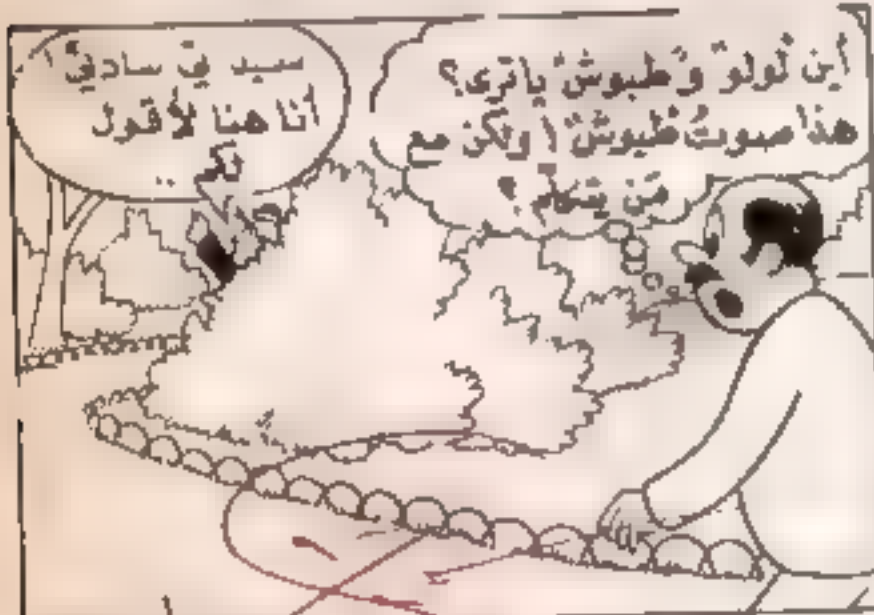 أين لولو وطبوش ياترى؟
هذا صوت طبوش! ولكن مع
من يتكلم؟
سيد تي سادتي!
أنا هنا لأقول
لكم ..